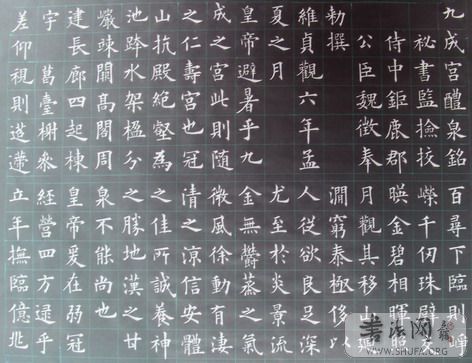 九成宮醴泉銘
秘書監撿挍
侍中鉅鹿郡
公臣魏徵奉
勅撰
維貞觀六年孟
夏之月
皇帝避暑乎九
成之宮此則隨
之仁壽宮也冠
山抗殿絕壑為
池跨水架楹分
巖竦闕高閣周
建長廊四起棟
宇葛臺榭參
差仰視則迢遰
百尋下則崢
嶸千仞珠壁交
暎金碧相暉照
月觀其移山迴
澗窮泰極侈以
人從欲良足深
尤至於炎景流
金無鬱蒸之氣
微風徐動有淒
清之涼信安體
之佳所誠養神
之勝地漢之甘
泉不能尚也
皇帝爰在弱冠
經營四方逮乎
立年撫臨億兆
书法网